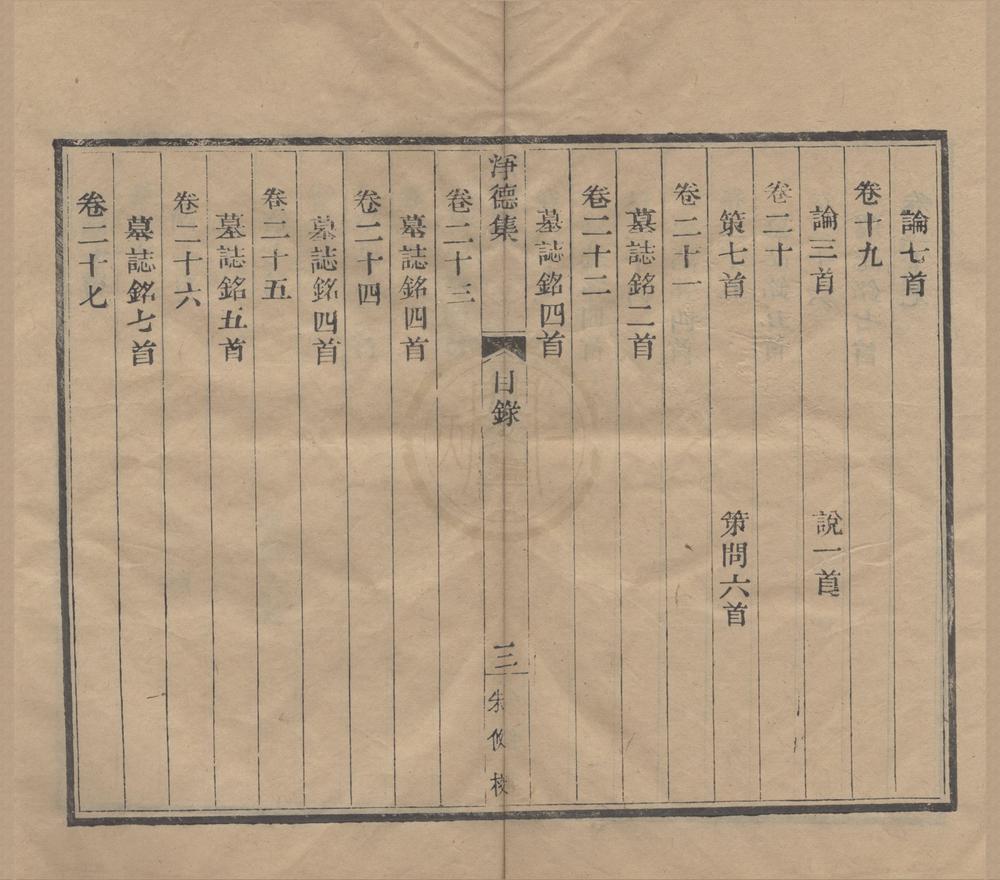 論七首
卷十九
論三首　說一首
卷二十
策七首　策問六首
卷二十一
墓誌銘二首
卷二十二
墓誌銘四首
淨德集　目錄　三　朱攸校
卷二十三
墓誌銘四首
卷二十四
墓誌銘四首
卷二十五
墓誌銘五首
卷二十六
墓誌銘七首
卷二十七